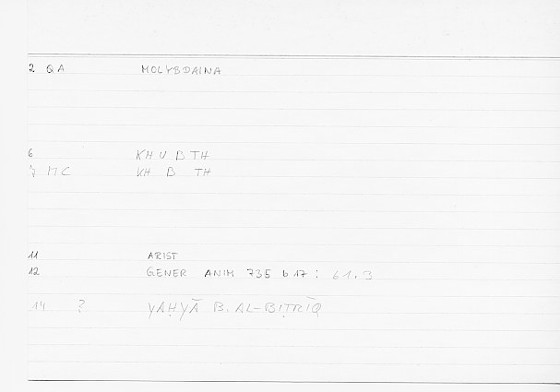 2 QA MOLYBDAINA
6 KHUBTH
7 MC KH B TH
11 ARIST
12 GENER ANIM 735 b 17 : 61.3
14 ? YAḤYĀ B. AL-BIṬRĪQ